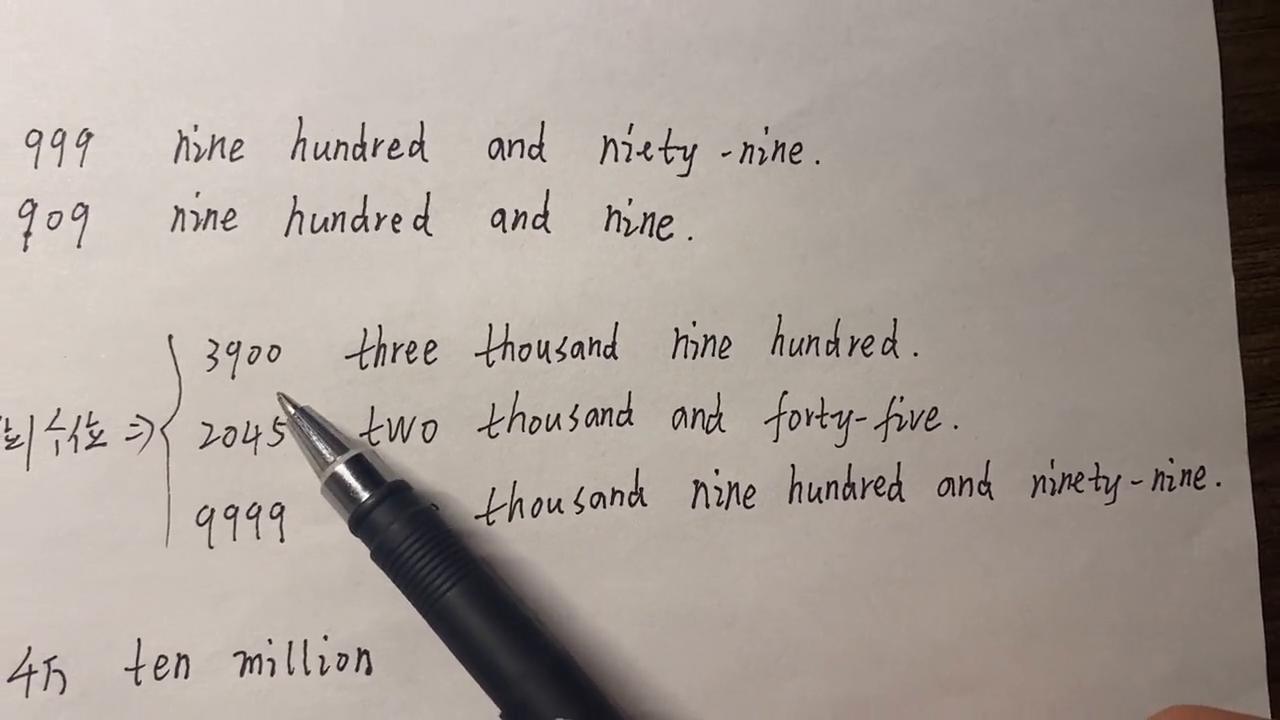 999 nine hundred and niety-nine.
909 nine hundred and nine.
3900 three thousand nine hundred.
2045 two thousand and forty-five.
9999 thousand nine hundred and ninety-nine.
ten million